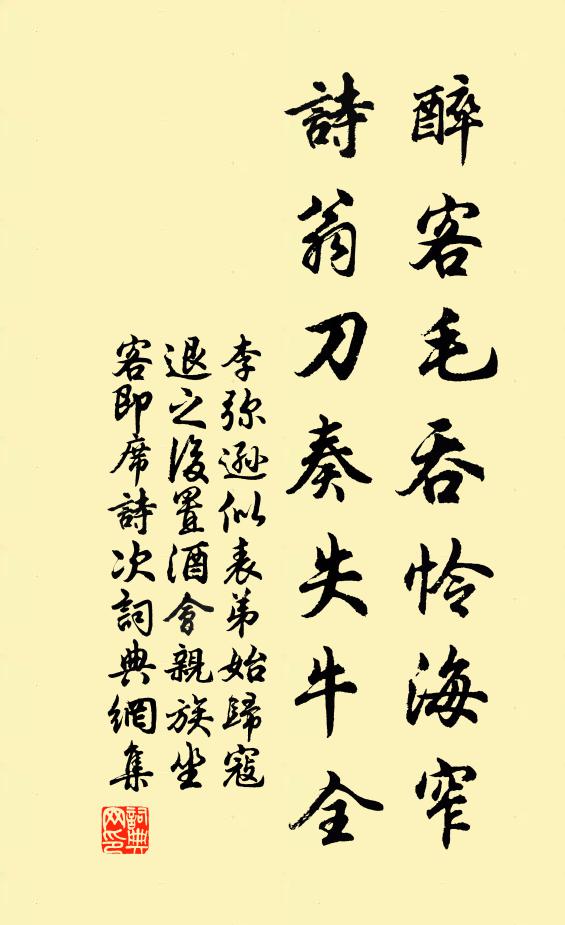 醉客毛吞怜海窄
詩翁刀奏失牛全
李弥遜似表弟始歸寇
退之後置酒會親族坐
客即席詩次詞典網集
詞典網印